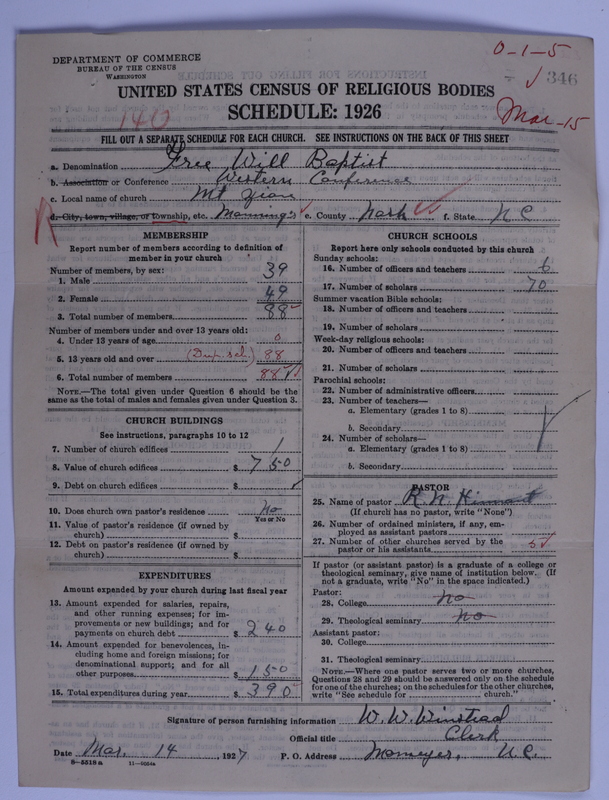 DEPARTMENT OF COMMERCE
BUREAU OF THE CENSUS
WASHINGTON
0-1-5
346
UNITED STATES CENSUS OF RELIGIOUS BODIES
SCHEDULE: 1926
140
Mar-15
FILL OUT A SEPARATE SCHEDULE FOR EACH CHURCH. SEE INSTRUCTIONS ON THE BACK OF THIS SHEET
a. Denomination Free Will Baptist
b. Association or Conference Western Conference
c. Local name of church Mt Zion
d. City, town, village, or Township, etc. Manning's e. County Nash f. State N C
MEMBERSHIP
Report number of members according to definition of member in your church
Number of members, by sex:
1. Male 39
2. Female 49
3. Total number of members 88
Number of members under and over 13 years old:
4. Under 13 years of age 0
5. 13 years old and over (Dup. sch.) 88
6. Total number of members 88
NOTE.—The total given under Question 6 should be the same as the total of males and females given under Question 3.
CHURCH BUILDINGS
See instructions, paragraphs 10 to 12
7. Number of church edifices 1
8. Value of church edifices $ 750
9. Debt on church edifices $
10. Does church own pastor's residence No
Yes or No
11. Value of pastor's residence (if owned by church) $
12. Debt on pastor's residence (if owned by church) $
EXPENDITURES
Amount expended by your church during last fiscal year
13. Amount expended for salaries, repairs, and other running expenses; for improvements or new buildings; and for payments on church debt $ 240
14. Amount expended for benevolences, including home and foreign missions; for denominational support; and for all other purposes $ 150
15. Total expenditures during year $ 390
CHURCH SCHOOLS
Report here only schools conducted by this church
Sunday schools:
16. Number of officers and teachers 6
17. Number of scholars 70
Summer vacation Bible schools:
18. Number of officers and teachers
19. Number of scholars
Week-day religious schools:
20. Number of officers and teachers
21. Number of scholars
Parochial schools:
22. Number of administrative officers
23. Number of teachers—
a. Elementary (grades 1 to 8)
b. Secondary
24. Number of scholars—
a. Elementary (grades 1 to 8)
b. Secondary
PASTOR
25. Name of pastor R. N. Hinnant
(If church has no pastor, write "None")
26. Number of ordained ministers, if any, employed as assistant pastors
27. Number of other churches served by the pastor or his assistants 5
If pastor (or assistant pastor) is a graduate of a college or theological seminary, give name of institution below. (If not a graduate, write "No" in the space indicated.)
Pastor:
28. College no
29. Theological seminary no
Assistant pastor:
30. College
31. Theological seminary
NOTE.—Where one pastor serves two or more churches, Questions 28 and 29 should be answered only on the schedule for one of the churches; on the schedules for the other churches, write "See schedule for church."
Signature of person furnishing information W. W. Winstead
Official title Clerk
Date Mar. 14, 1927 P. O. Address Momeyer, N.C.
8-5518a